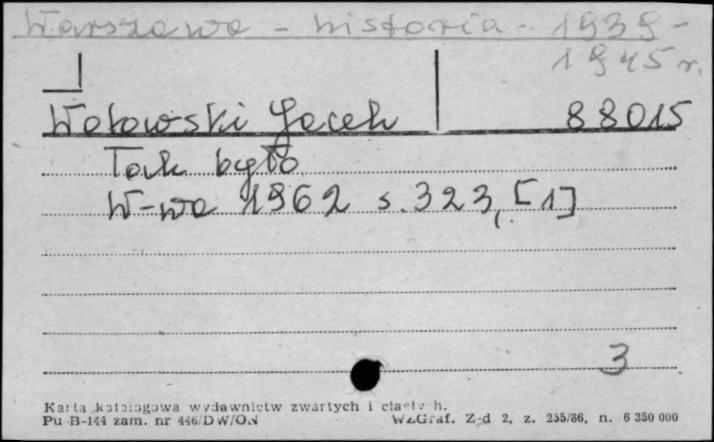 Warszawa - historia - 1939 -
1945 r.
Wołowski Jacek 88015
Tak było
W-wa 1962 s. 323, [1]
3
Karta katalogowa wydawnictw zwartych i ciągłych.
Pu-B-144 zam. nr 446/DW/ON WZGraf. Z-d 2, z. 255/86, n. 6 350 000